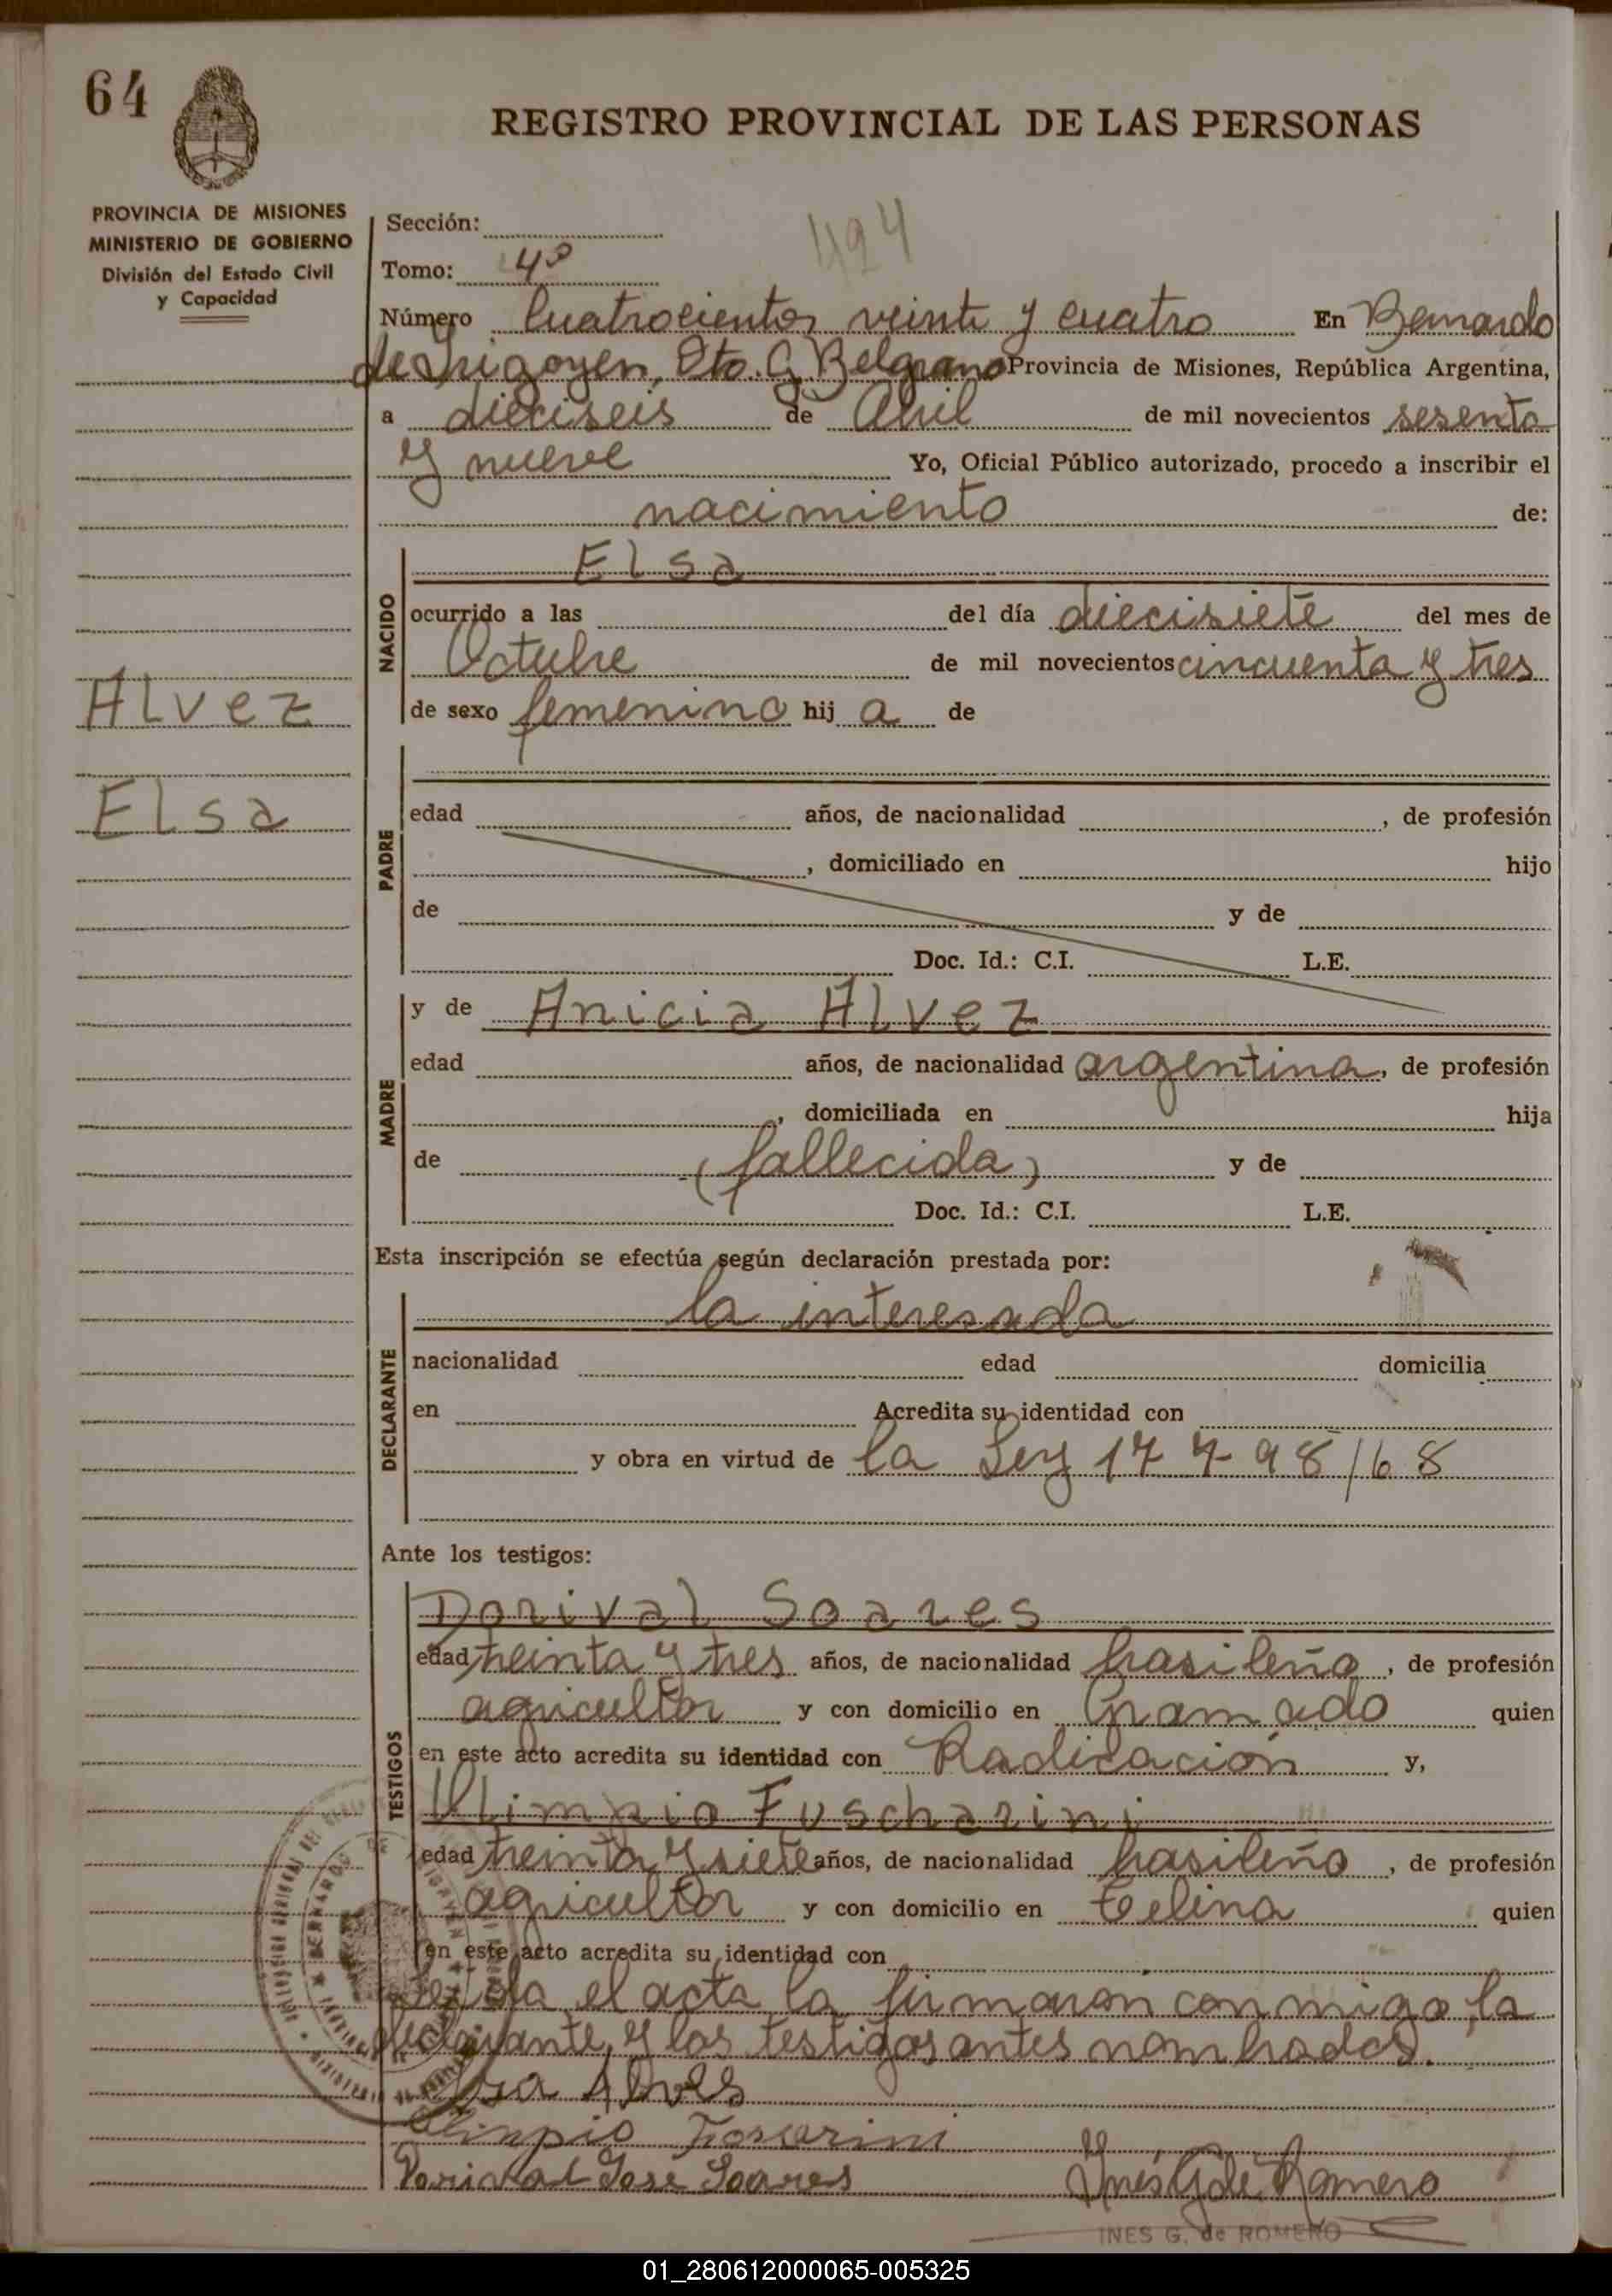 64
REGISTRO PROVINCIAL DE LAS PERSONAS
PROVINCIA DE MISIONES
MINISTERIO DE GOBIERNO
División del Estado Civil
y Capacidad
424
Sección:
Tomo: 4º
Número Cuatrocientos veinte y cuatro En Bernardo
de Irigoyen, Dto. G. Belgrano Provincia de Misiones, República Argentina,
a dieciseis de Abril de mil novecientos sesenta
y nueve Yo, Oficial Público autorizado, procedo a inscribir el
nacimiento de:
NACIDO
Elsa
ocurrido a las del día diecisiete del mes de
Octubre de mil novecientos cincuenta y tres
de sexo femenino hij a de
Alvez
Elsa
PADRE
edad años, de nacionalidad , de profesión
, domiciliado en hijo
de y de
Doc. Id.: C.I. L.E.
MADRE
y de Anicia Alvez
edad años, de nacionalidad argentina, de profesión
, domiciliada en hija
de (fallecida) y de
Doc. Id.: C.I. L.E.
Esta inscripción se efectúa según declaración prestada por:
DECLARANTE
la interesada
nacionalidad edad domicilia
en Acredita su identidad con
y obra en virtud de la Ley 17 798/68
Ante los testigos:
TESTIGOS
Dorival Soares
edad treinta y tres años, de nacionalidad brasileña, de profesión
agricultor y con domicilio en Gramado quien
en este acto acredita su identidad con Radicación y,
Olimpio Fuscharini
edad treinta y siete años, de nacionalidad brasileña, de profesión
agricultor y con domicilio en Celina quien
en este acto acredita su identidad con
Leida el acta la firmaron conmigo, la
declarante y los testigos antes nombrados.
Alves
Olinpio Foscarini
Dorival José Soares Inés G. de Romero
INES G. de ROMERO
01_280612000065-005325